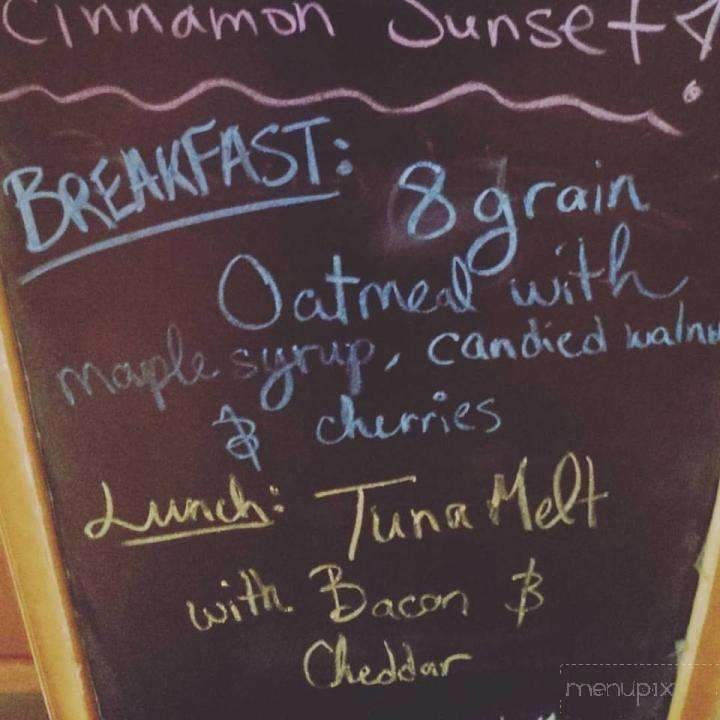 Cinnamon Sunset!
BREAKFAST: 8 grain
Oatmeal with
maple syrup, candied walnu
& cherries
Lunch: Tuna Melt
with Bacon &
Cheddar
menupix